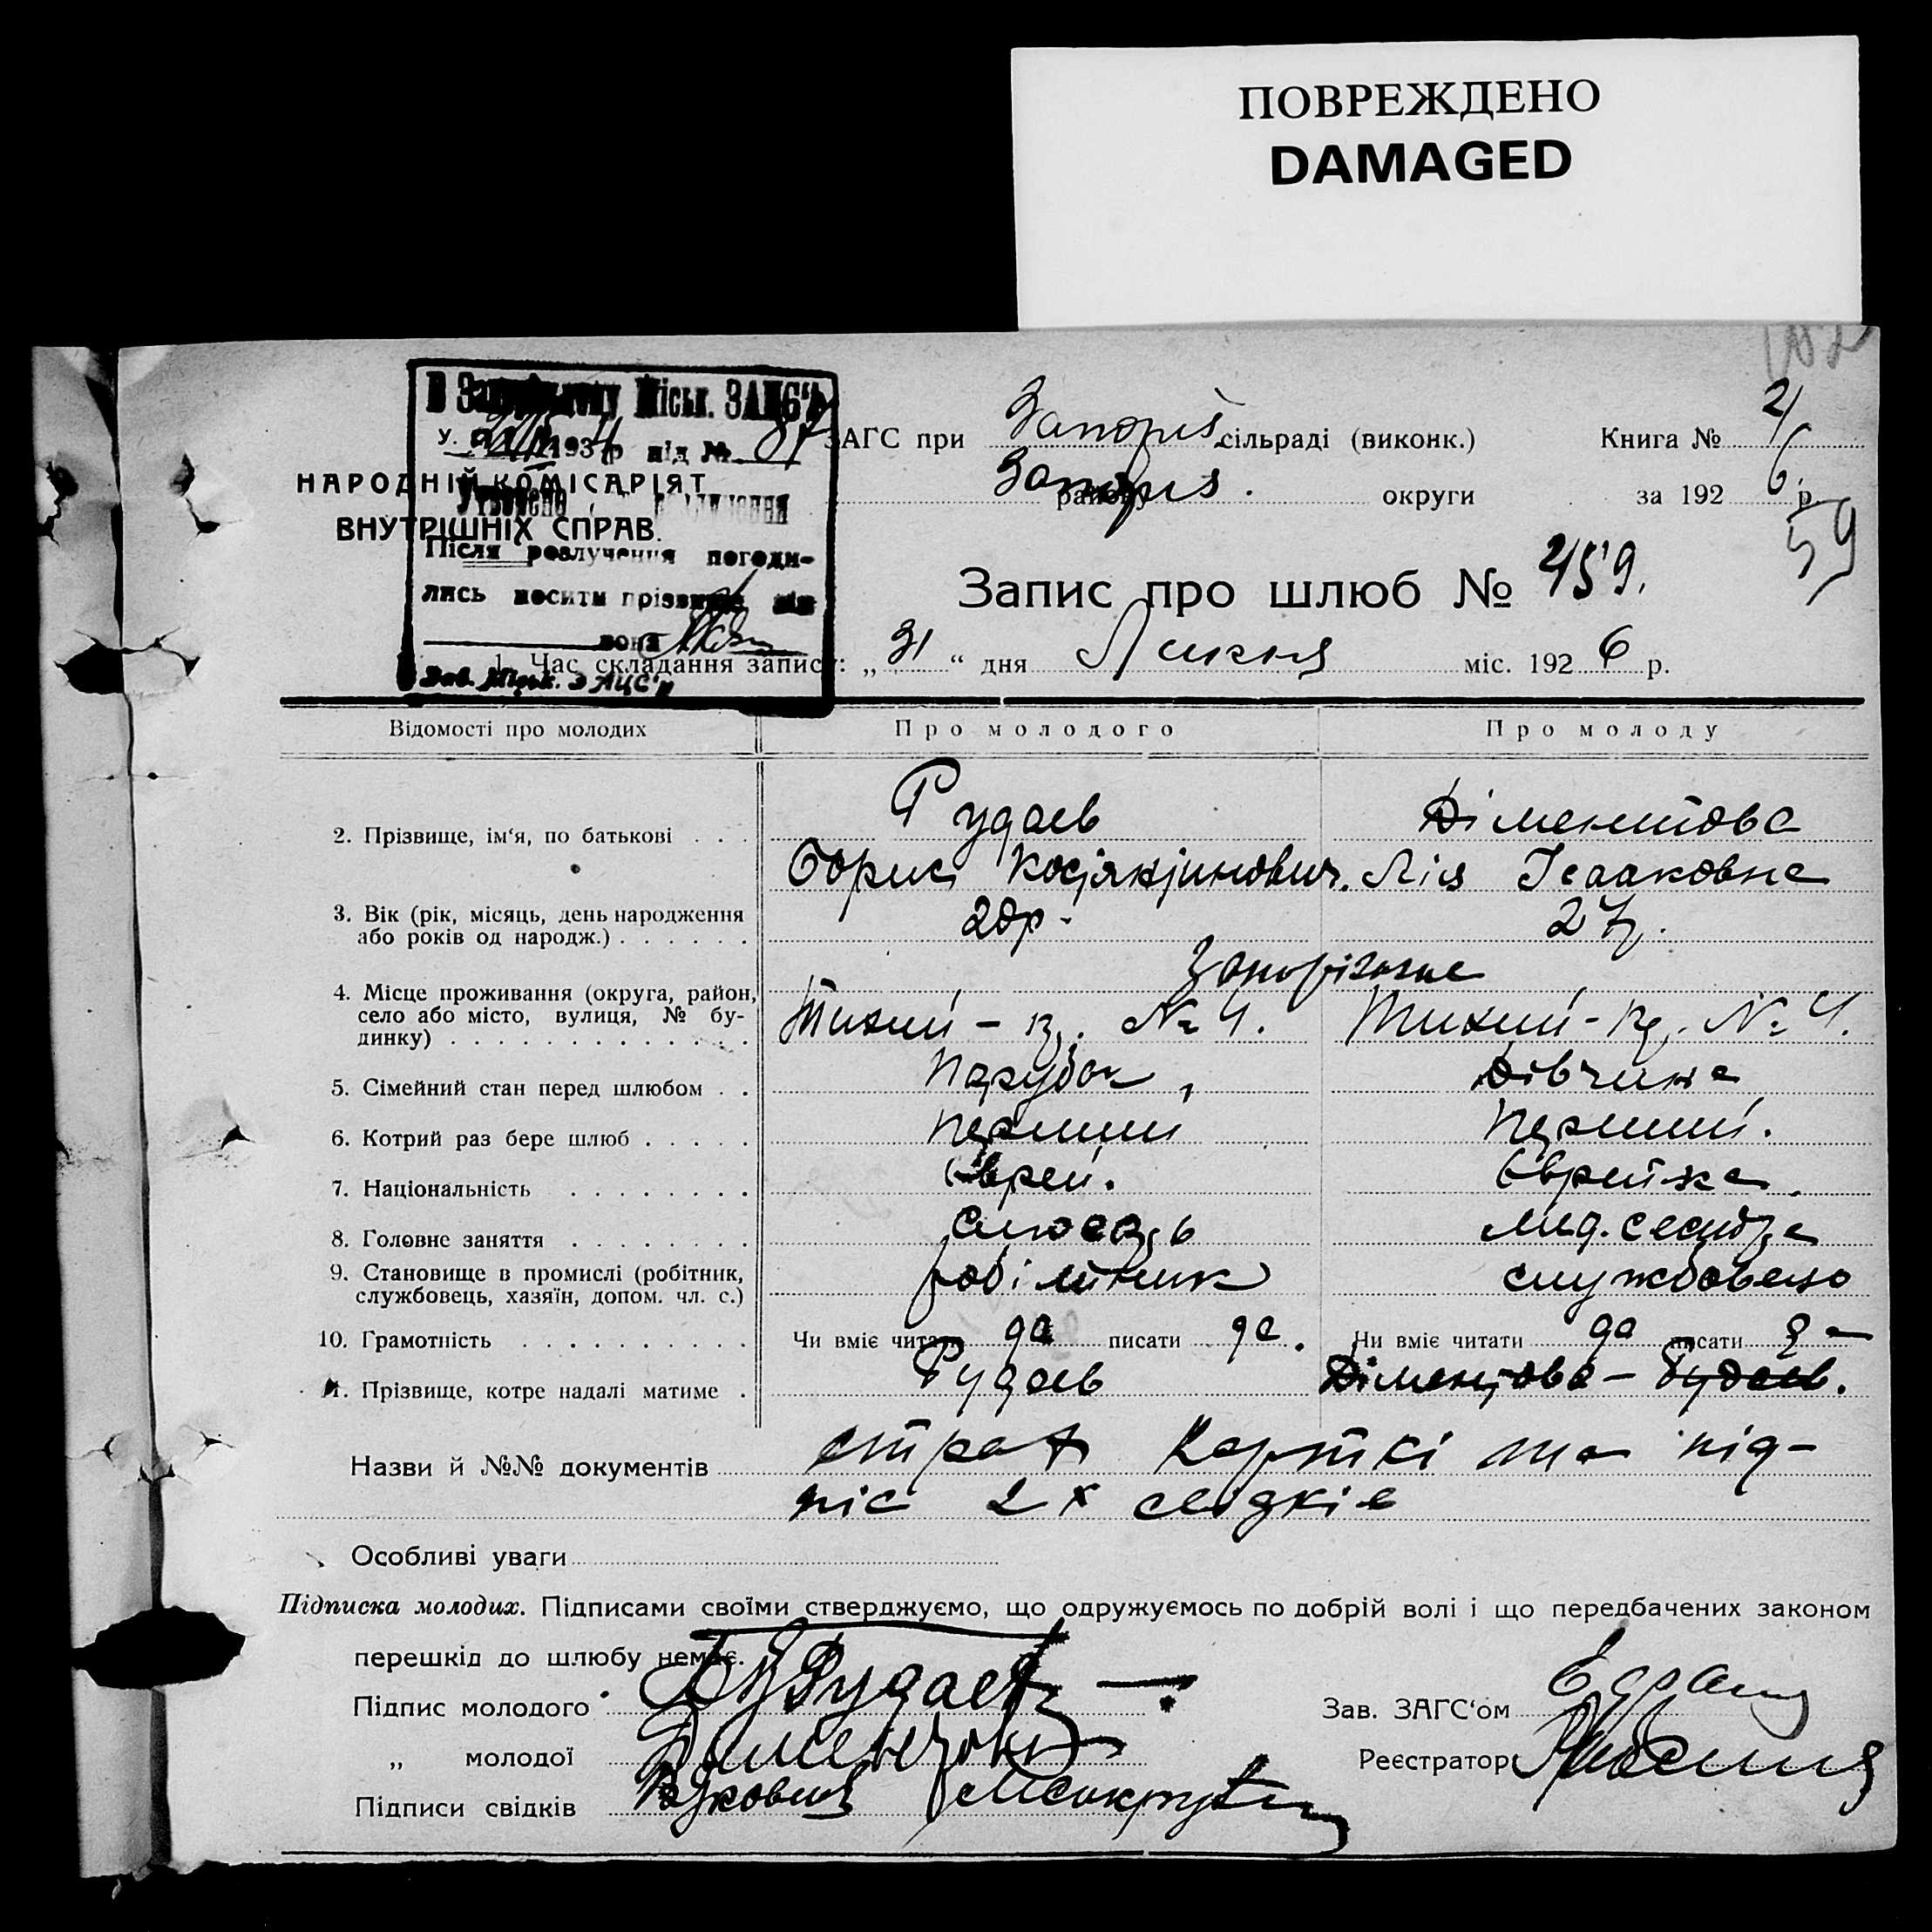 ПОВРЕЖДЕНО
DAMAGED
Міськ.
193 р під №
НАРОДНІЙ КОМІСАРІЯТ
ВНУТРІШНІХ СПРАВ.
Після розлучення погоди-
лись носити прізвище він
вона
ЗАГС при Запоріз. сільраді (виконк.) Книга № 2
району Запоріз. округи за 192 6 р.
59
Запис про шлюб № 459.
1. Час складання запису: „ 31 “ дня Липня міс. 192 6 р.
Відомості про молодих Про молодого Про молоду
2. Прізвище, ім‘я, по батькові . . . Рудаев Діментова
Борис Лія Ісааковна
3. Вік (рік, місяць, день народження
або років од народж.) . . . . . . 27
4. Місце проживання (округа, район,
село або місто, вулиця, № бу-
динку) . . . . . . . . . . . . . Тихий - № 4. Тихий - № 4.
5. Сімейний стан перед шлюбом . . Парубок, Дівчина
6. Котрий раз бере шлюб . . . . . Перший Перший.
7. Національність . . . . . . . . Єврей. Єврейка.
8. Головне заняття . . . . . . . . Слюсарь мед. сестра
9. Становище в промислі (робітник,
службовець, хазяїн, допом. чл. с.) робітник службовець
10. Грамотність . . . . . . . . . . Чи вміє читати да писати да. Чи вміє читати да писати да
11. Прізвище, котре надалі матиме . Рудаев Діментова - Рудаев.
Назви й №№ документів страх карткі та під-
піс 2х свідків
Особливі уваги
Підписка молодих. Підписами своїми стверджуємо, що одружуємось по добрій волі і що передбачених законом
перешкід до шлюбу немає.
Підпис молодого Рудаев
„ молодої
Підписи свідків
Зав. ЗАГС‘ом
Реєстратор